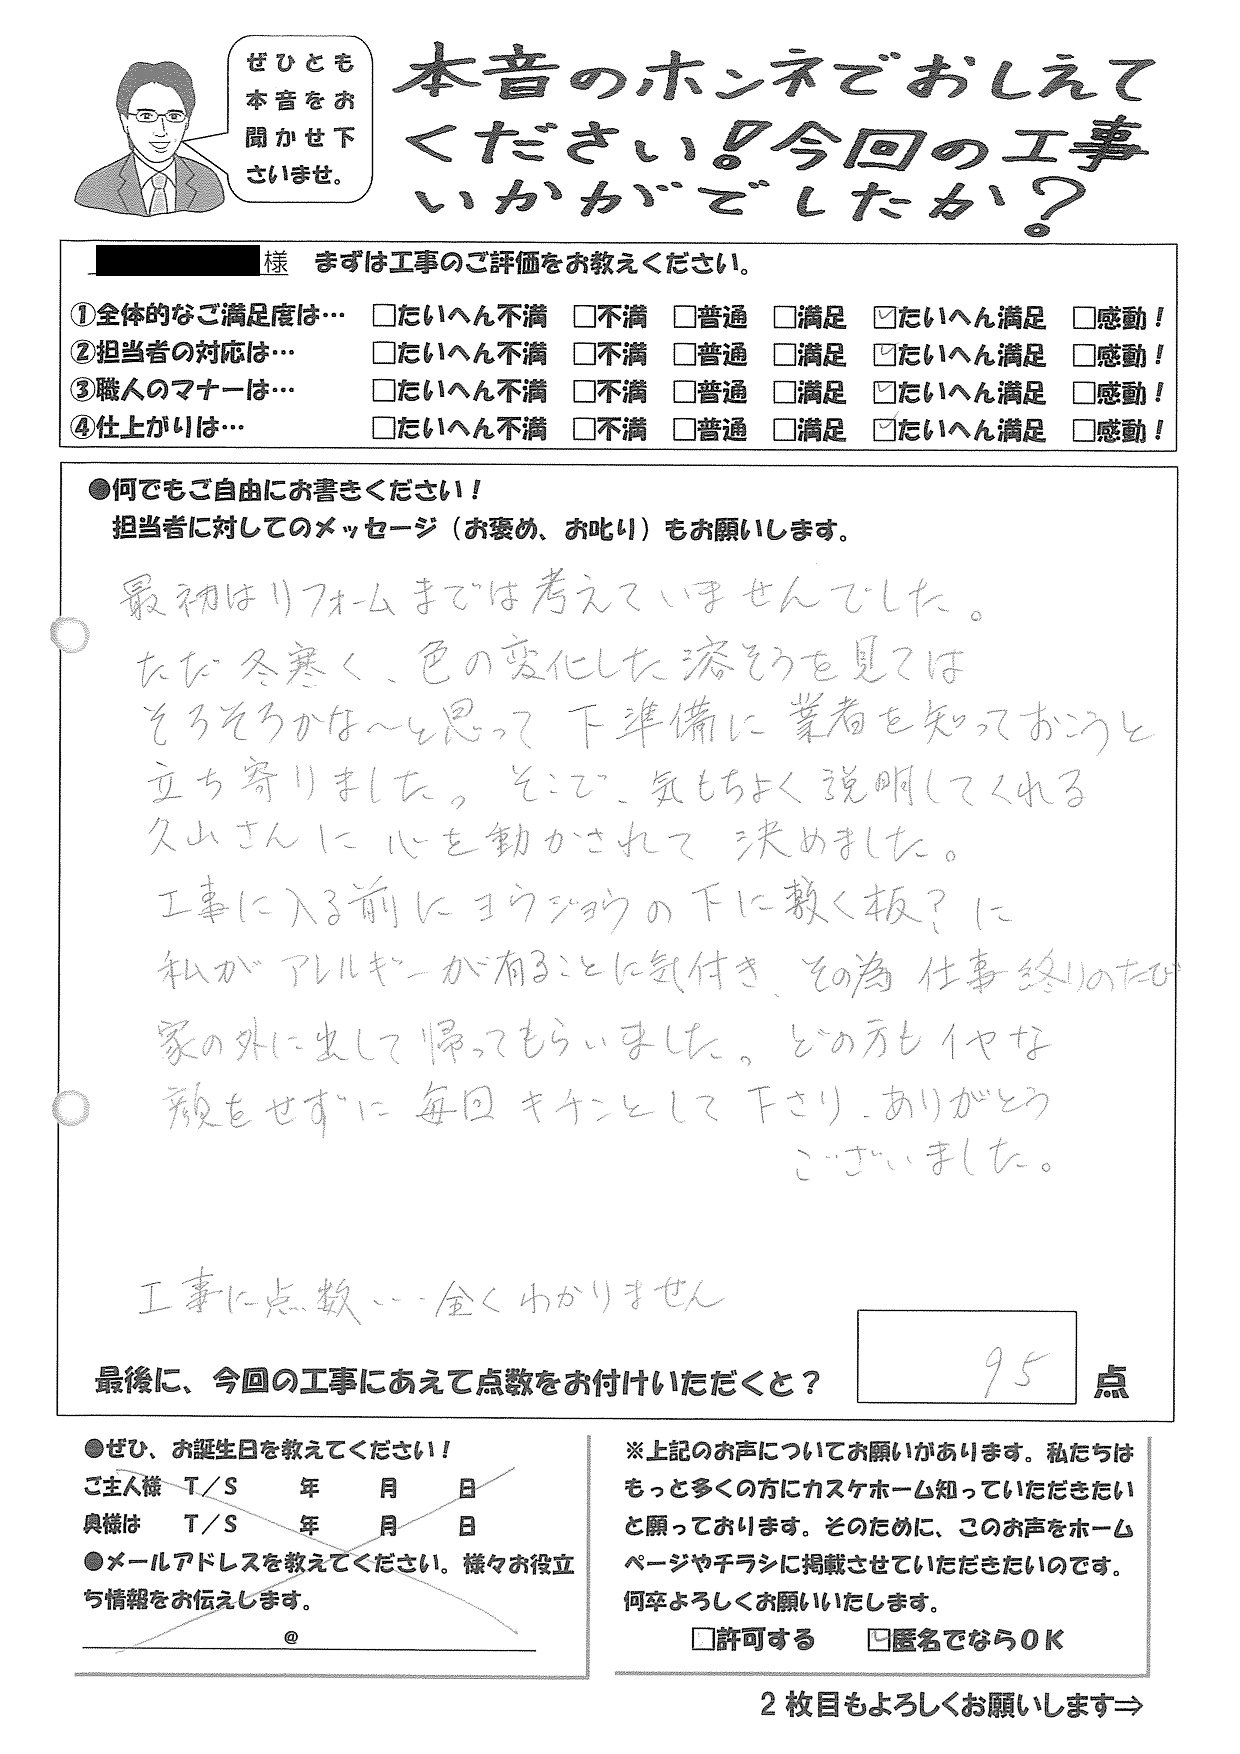 ぜひとも
本音をお
聞かせ下
さいませ。
本音のホンネでおしえて
ください!今回の工事
いかがでしたか?
様 まずは工事のご評価をお教えください。
①全体的なご満足度は… □たいへん不満 □不満 □普通 □満足 ☑たいへん満足 □感動!
②担当者の対応は… □たいへん不満 □不満 □普通 □満足 ☑たいへん満足 □感動!
③職人のマナーは… □たいへん不満 □不満 □普通 □満足 ☑たいへん満足 □感動!
④仕上がりは… □たいへん不満 □不満 □普通 □満足 ☑たいへん満足 □感動!
●何でもご自由にお書きください!
担当者に対してのメッセージ(お褒め、お叱り)もお願いします。
最初はリフォームまでは考えていませんでした。
ただ冬寒く、色の変化した浴そうを見ては
そろそろかな〜と思って下準備に業者を知っておこうと
立ち寄りました。そこで、気もちよく説明してくれる
久山さんに心を動かされて決めました。
工事に入る前にヨウジョウの下に敷く板?に
私がアレルギーが有ることに気付き、その為仕事終りのたび
家の外に出して帰ってもらいました。どの方もイヤな
顔をせずに毎回キチンとして下さり、ありがとう
ございました。
工事に点数・・・全くわかりません
最後に、今回の工事にあえて点数をお付けいただくと? 95 点
●ぜひ、お誕生日を教えてください!
ご主人様 T/S 年 月 日
奥様は T/S 年 月 日
●メールアドレスを教えてください。様々お役立
ち情報をお伝えします。
@
※上記のお声についてお願いがあります。私たちは
もっと多くの方にカスケホーム知っていただきたい
と願っております。そのために、このお声をホーム
ページやチラシに掲載させていただきたいのです。
何卒よろしくお願いいたします。
□許可する ☑匿名でならOK
2枚目もよろしくお願いします⇒